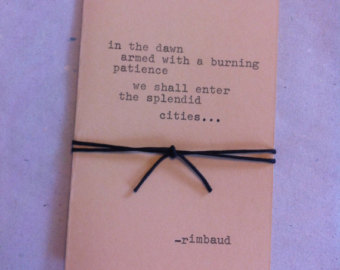 in the dawn
armed with a burning
patience
we shall enter
the splendid
cities...
-rimbaud